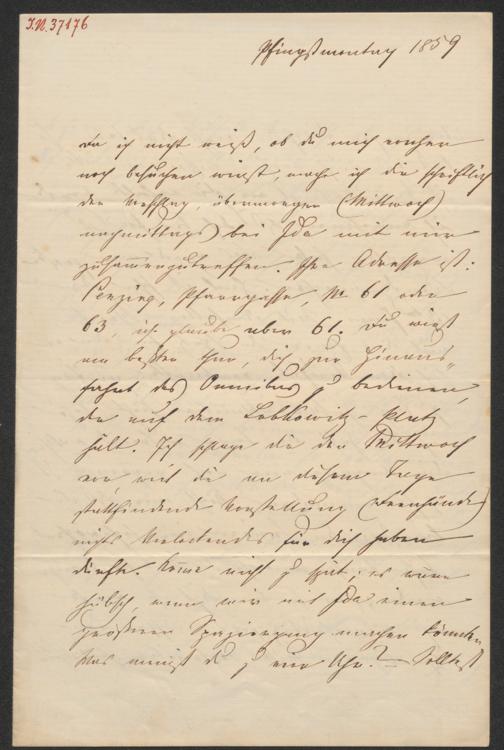 I.N. 37176
Pfingstmontag 1859
Da ich nicht weiß, ob du mich vorher
noch besuchen wirst, mache ich dir schriftlich
den Vorschlag, übermorgen (Mittwoch)
nachmittags bei Ida mit mir
zusammenzutreffen. Ihre Adresse ist:
Penzing, Pfarrgasse, No 61 oder
63, ich glaube aber 61. Du wirst
am besten thun, dich zur Hinaus-
fahrt des Omnibus zu bedienen,
der auf dem Lobkowitz-Platz
hält. Ich schlage dir den Mittwoch
vor, weil die an diesem Tage
stattfindende Vorstellung (Feenhände)
nichts Verlockendes für dich haben
dürfte. Komme nicht zu spät; es wäre
hübsch, wenn wir mit Ida einen
größeren Spaziergang machen könnten.
Was meinst du zu vier Uhr? – Solltest